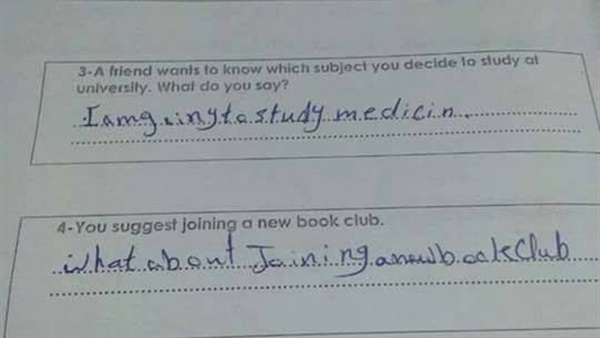 3-A friend wants to know which subject you decide to study at
university. What do you say?
I am going to study medicin
4-You suggest joining a new book club.
what about Joining a new book Club